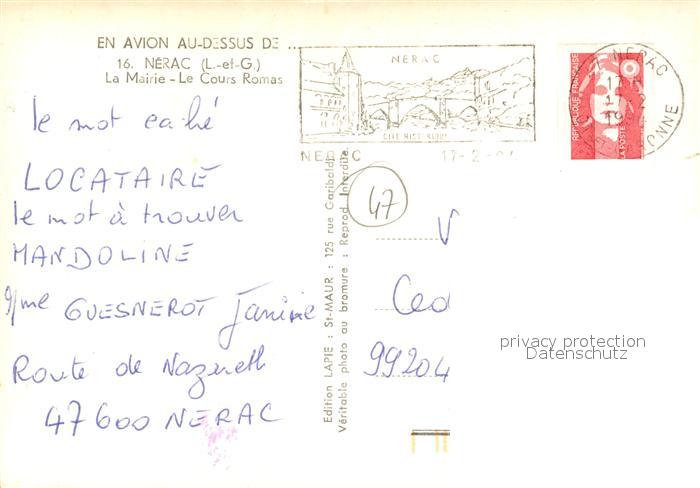 EN AVION AU-DESSUS DE ...
16. NÉRAC (L.-et-G.)
La Mairie - Le Cours Romas
le mot caché
LOCATAIRE
le mot à trouver
MANDOLINE
Mme GUESNEROT Janine
Route de Nazareth
47600 NERAC
NERAC
CITE HISTORIQUE
NERAC
17-2-94
NERAC
17-2
1994
GARONNE
REPUBLIQUE FRANÇAISE
LA POSTE
Edition LAPIE : St-MAUR : 125 rue Garibaldi
Véritable photo au bromure : Reprod. Interdite.
47
V
Ced
99204
privacy protection
Datenschutz